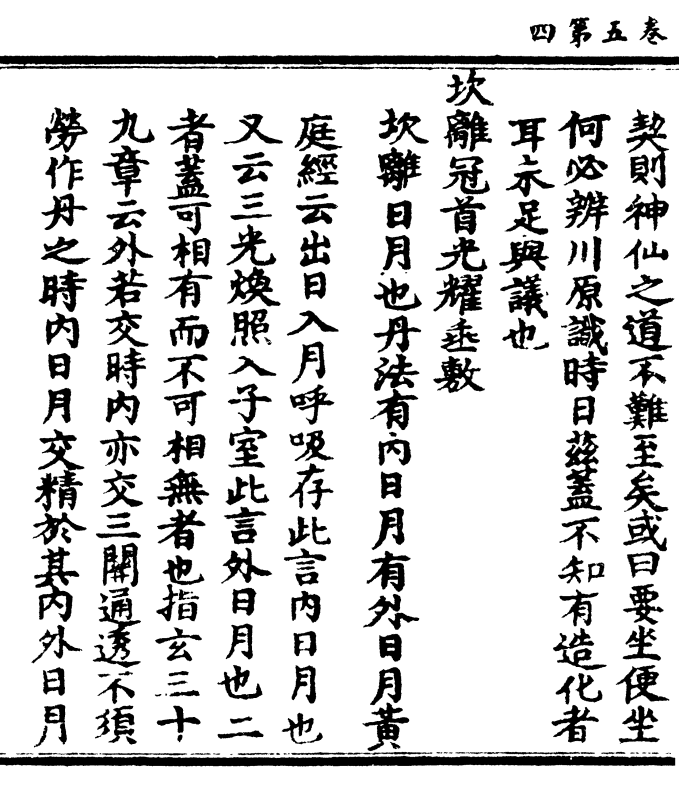 卷五第四
契則神仙之道不難至矣或曰要坐便坐
何必辨川原識時日茲蓋不知有造化者
耳示足與議也
坎離冠首光耀垂敷
坎離日月也丹法有內日月有外日月黃
庭經云出日入月呼吸存此言內日月也
又云三光煥照入子室此言外日月也二
者蓋可相有而不可相無者也指玄三十
九章云外若交時內亦交三關通透不須
勞作丹之時內日月交精於其內外日月